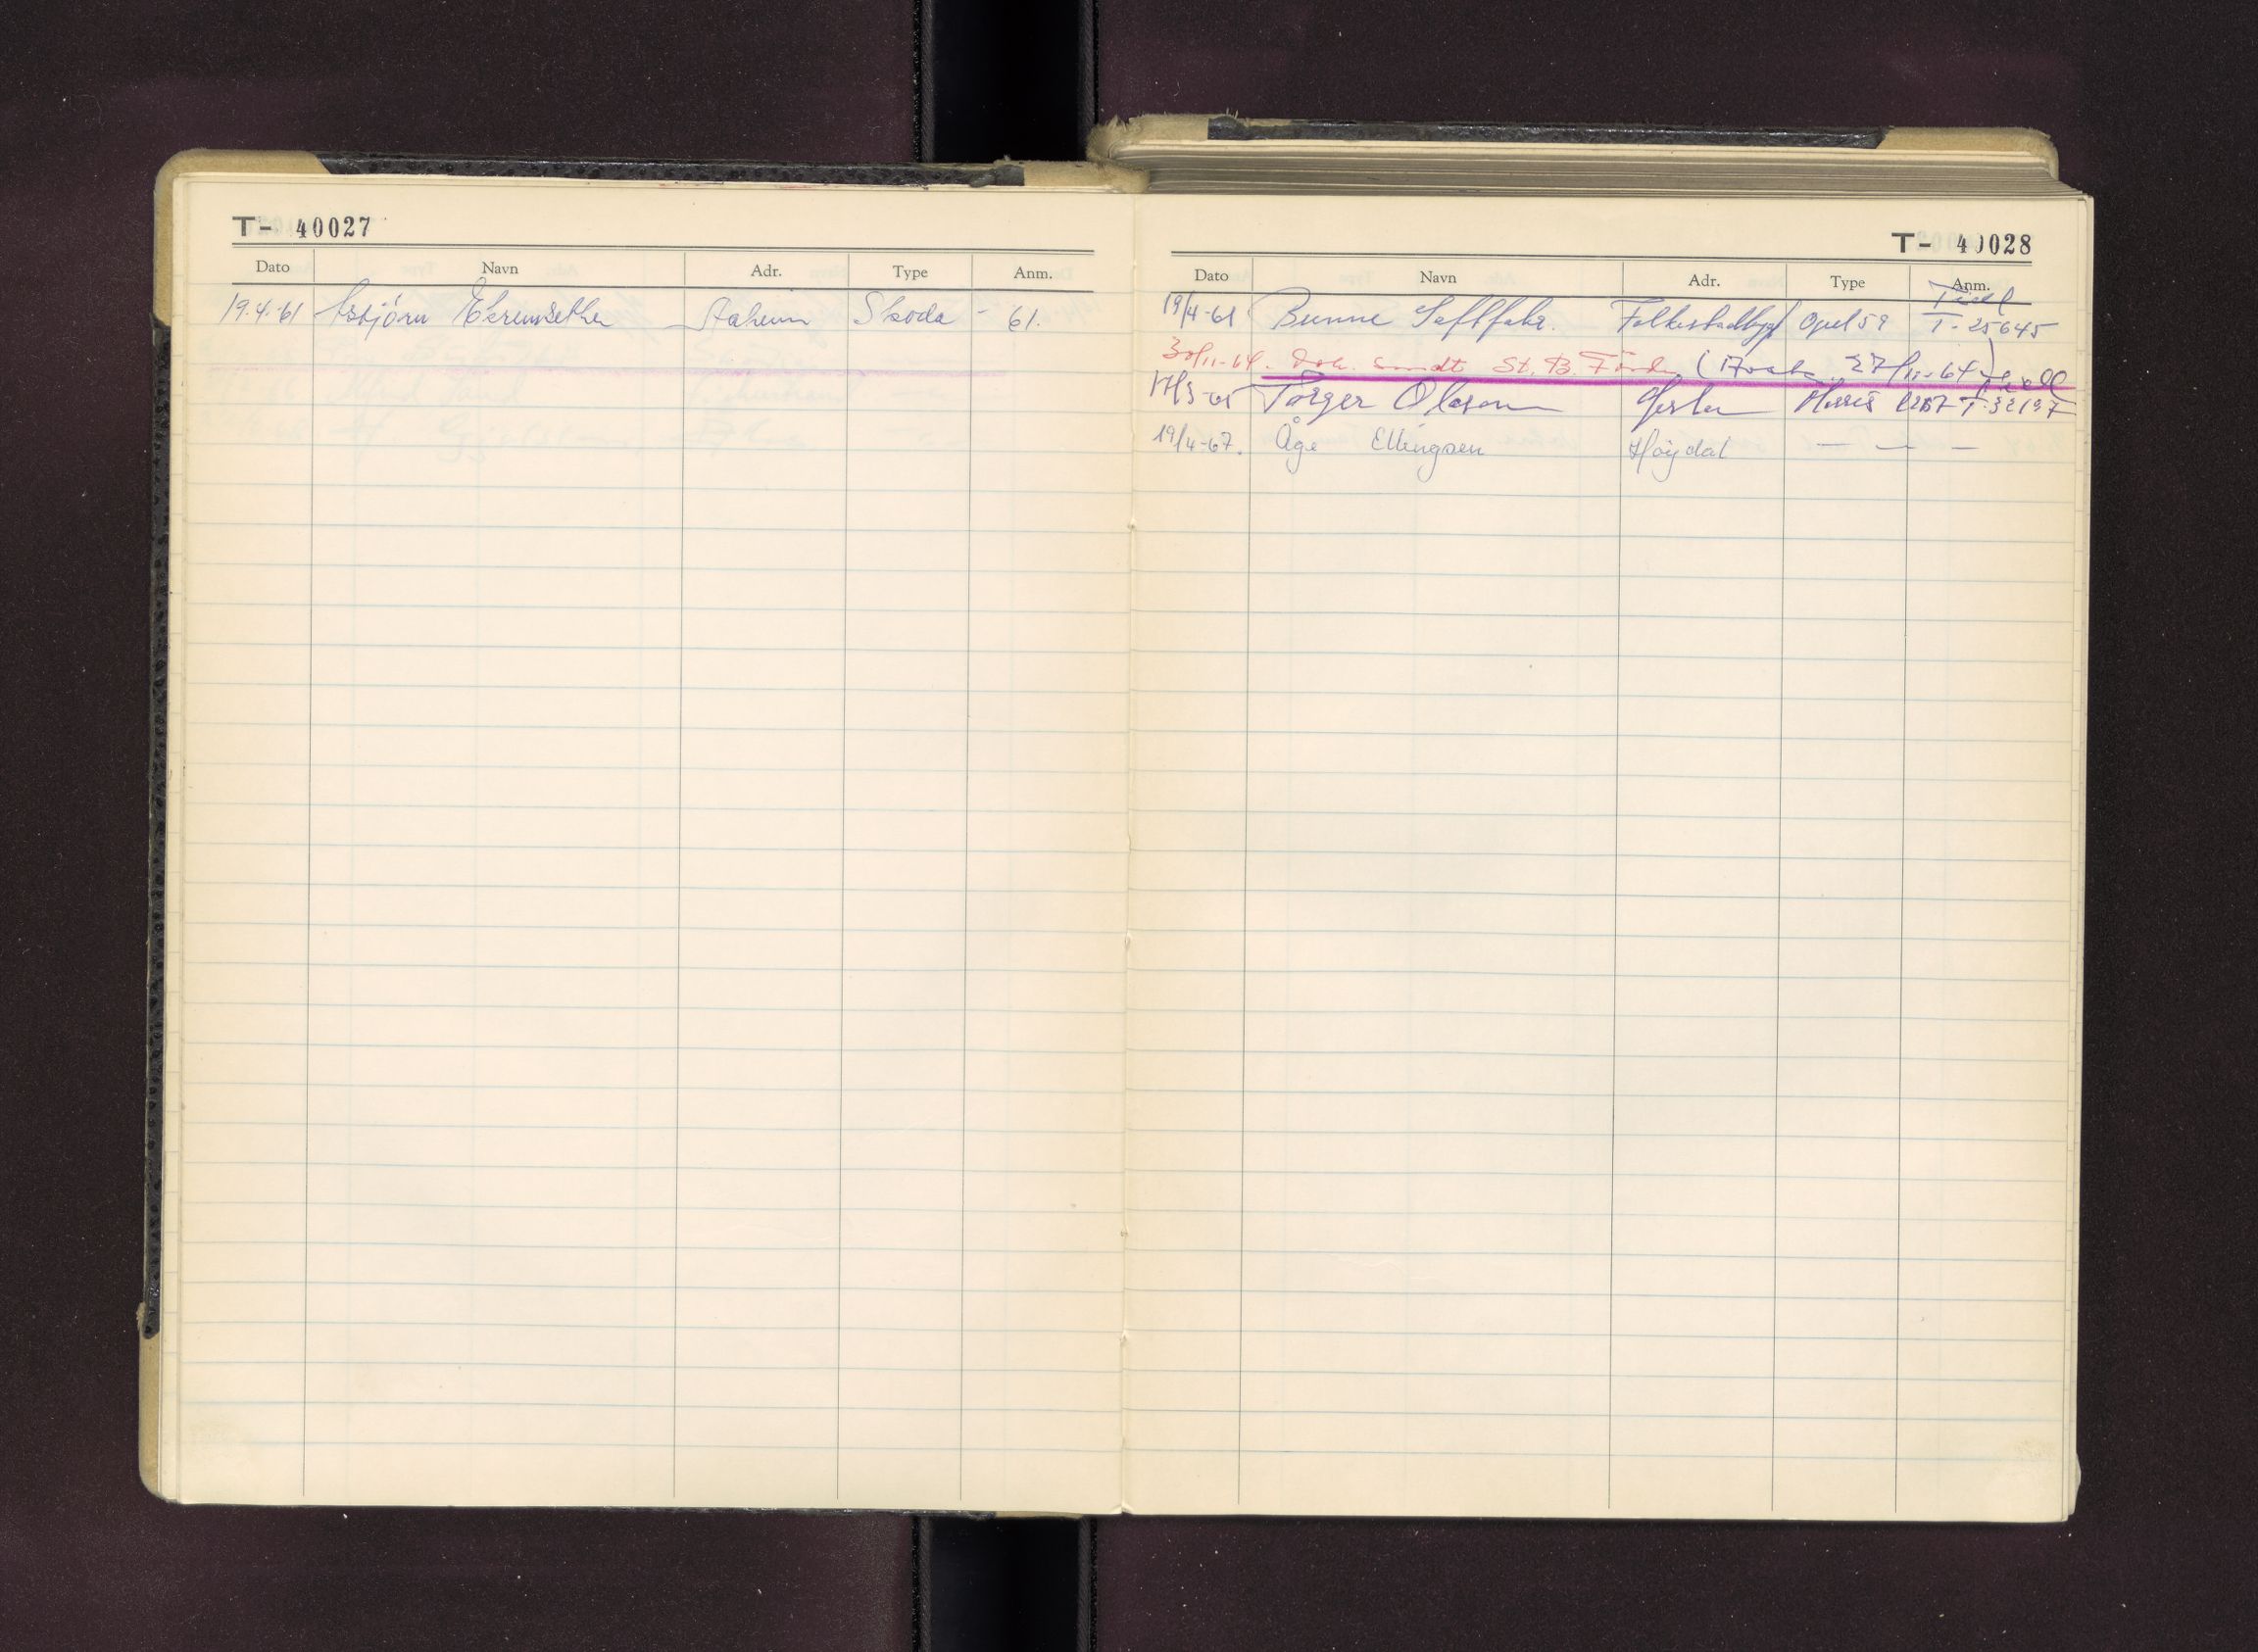 T- 40027
Dato Navn Adr. Type Anm.
19.4.-61 Asbjörn Ekremsæther Aaheim Skoda - 61.
T- 40028
Dato Navn Adr. Type Anm.
19/4-61 Bunne Folkestadbygd Opel 59 Tidl T-25645
30/11-64. Dok. sendt St. B. Förde ( 27/11-64)
17/3-65 Torger Olesen Morris Tidl T-32197
19/4-67. Åge Ellingsen Høydal — — —